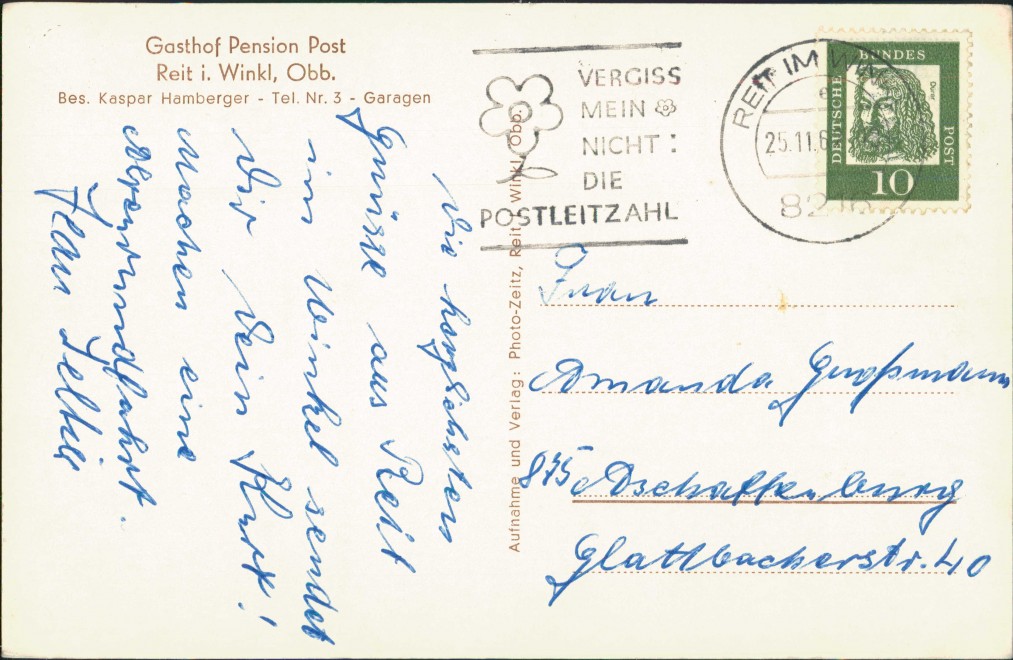 Gasthof Pension Post
Reit i. Winkl, Obb.
Bes. Kaspar Hamberger - Tel. Nr. 3 - Garagen
Die herzlichsten
Grüsse aus Reit
im Winkel sendet
Dir Dein Kurt!
Machen eine
Alpenrundfahrt.
Aufnahme und Verlag: Photo-Zeitz, Reit i. Winkl, Obb.
VERGISS
MEIN
NICHT:
DIE
POSTLEITZAHL
REIT IM WINKL
25.11.6
8216
DEUTSCHE
BUNDES
POST
Dürer
10
Frau
Amanda Großmann
875 Aschaffenburg
Glattbacherstr. 40